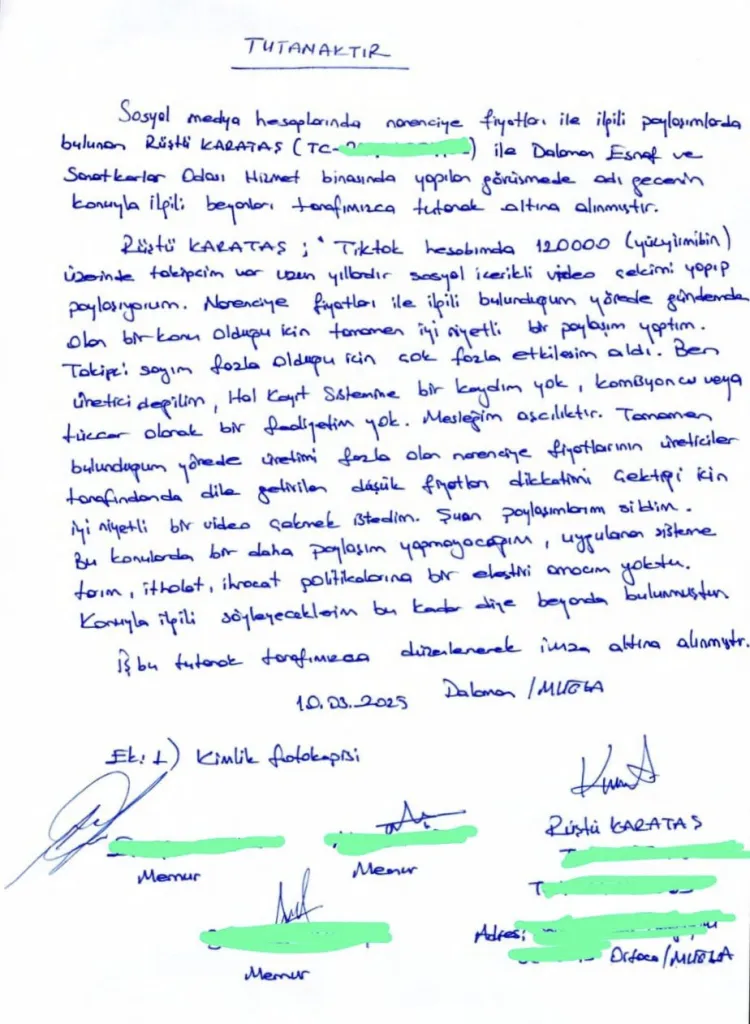 TUTANAKTIR
Sosyal medya hesaplarında narenciye fiyatları ile ilgili paylaşımlarda
bulunan Rüştü KARATAŞ (TC- ) ile Dalaman Esnaf ve
Sanatkarlar Odası Hizmet binasında yapılan görüşmede adı geçenin
konuyla ilgili beyanları tarafımızca tutanak altına alınmıştır.
Rüştü KARATAŞ ; " Tiktok hesabımda 120000 (yüzyirmibin)
üzerinde takipçim var uzun yıllardır sosyal içerikli video çekimi yapıp
paylaşıyorum. Narenciye fiyatları ile ilgili bulunduğum yörede gündemde
olan bir konu olduğu için tamamen iyi niyetli bir paylaşım yaptım.
Takipçi sayım fazla olduğu için çok fazla etkileşim aldı. Ben
üretici değilim, Hal Kayıt Sistemine bir kaydım yok, komisyoncu veya
tüccar olarak bir faaliyetim yok. Mesleğim aşcılıktır. Tamamen
bulunduğum yörede üretimi fazla olan narenciye fiyatlarının üreticiler
tarafındanda dile getirilen düşük fiyatları dikkatimi çektiği için
iyi niyetli bir video çekmek istedim. Şuan paylaşımlarım sildim.
Bu konularda bir daha paylaşım yapmayacağım, uygulanan sisteme
tarım, ithalat, ihracat politikalarına bir eleştiri amacım yoktu.
Konuyla ilgili söyleyeceklerim bu kadar diye beyanda bulunmuştur.
İş bu tutanak tarafımızca düzenlenerek imza altına alınmıştır.
10.03.2025 Dalaman /MUĞLA
Ek: 1) Kimlik fotokopisi
Rüştü KARATAŞ
Memur
Memur
Memur
Adres:
Ortaca/MUĞLA